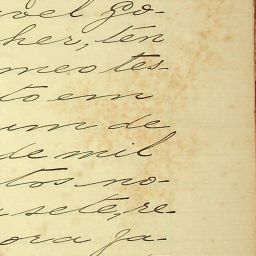 ovel Go-
her, ten
meo tes-
to em
um de
de mil
tos no-
sete, re-
ora ja-